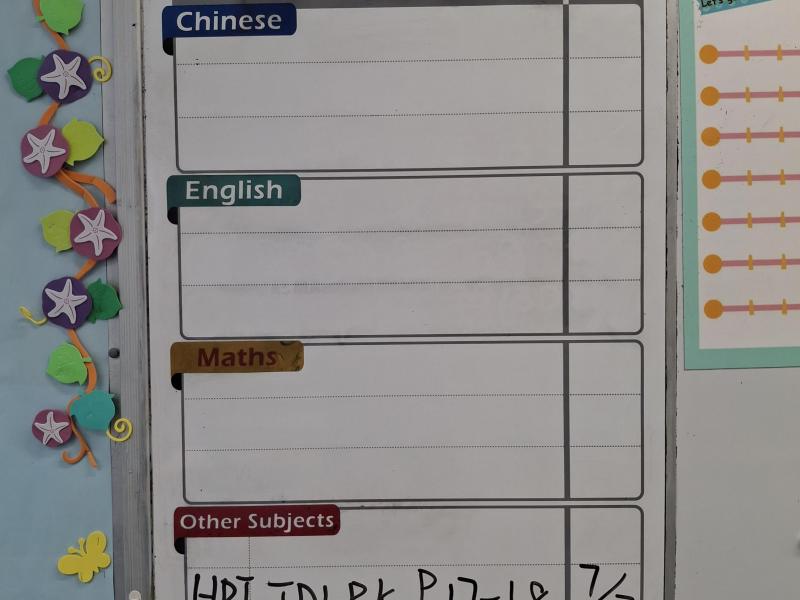 Chinese
English
Maths
Other Subjects
P.17-18 7/